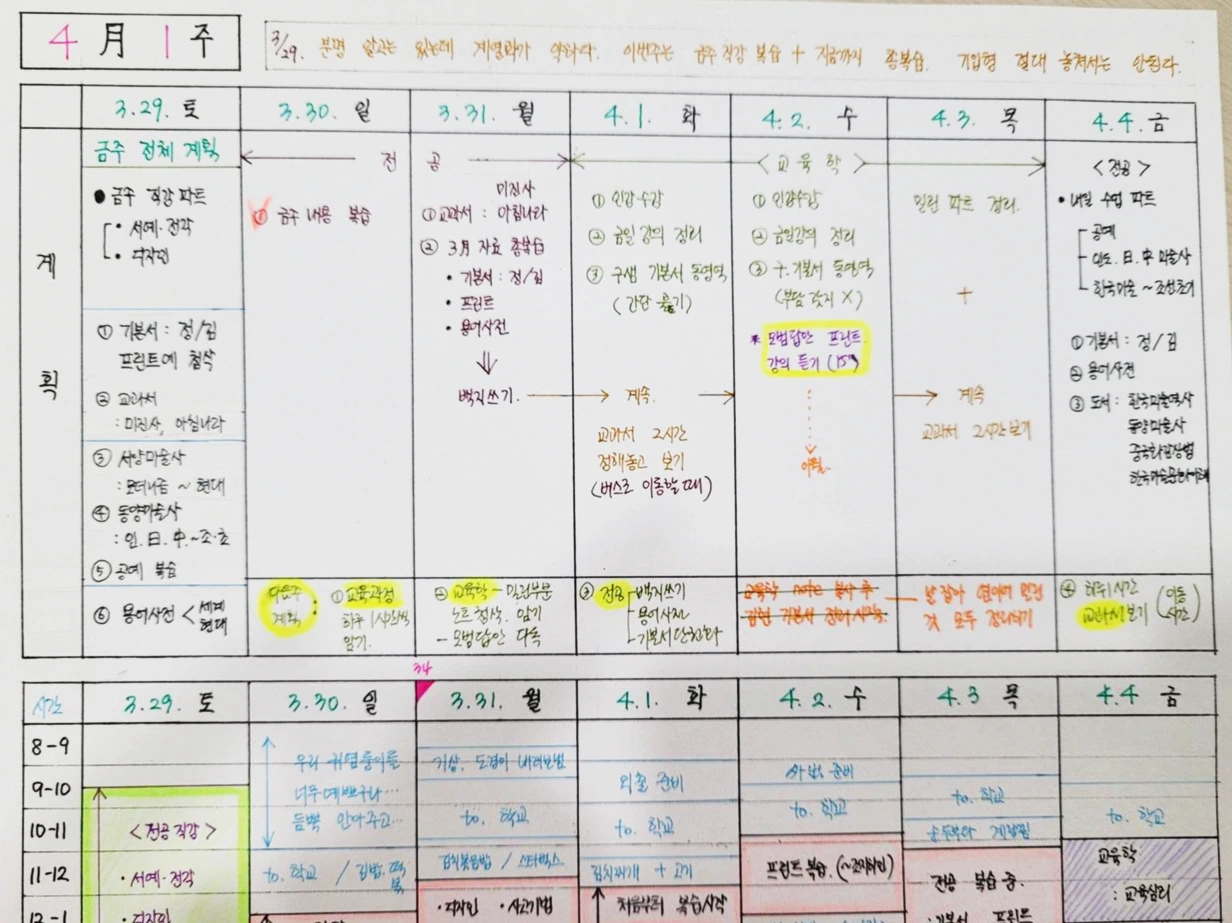 4 月 1 주
3/29. 분명 알고는 있는데 계열화가 약하다. 이번주는 금주 직강 복습 + 지금까지 총복습. 기입형 절대 놓쳐서는 안된다.
3.29. 토
3.30. 일
3.31. 월
4.1. 화
4.2. 수
4.3. 목
4.4. 금
계
획
금주 전체 계획
● 금주 직강 파트
• 서예·전각
• 디자인
① 기본서 : 정/김
프린트에 첨삭
② 교과서
: 미진사, 아침나라
③ 서양미술사
: 모더니즘 ~ 현대
④ 동양미술사
: 인. 日. 中. ~조·초
⑤ 공예 복습
⑥ 용어사전 < 세계
현대
전 공
① 금주 내용 복습
미진사
① 교과서 : 아침나라
② 3月 자료 총복습
• 기본서 : 정/김
• 프린트
• 용어사전
백지쓰기.
<교육학>
① 인강수강
② 금일 강의 정리
③ 구쌤 기본서 동영역
(간단 훑기)
계속.
교과서 2시간
정해놓고 보기
(버스로 이동할 때)
① 인강수강
② 금일강의 정리
③ 기본서 동영역
(부담 갖지 X)
* 모범답안 프린트.
강의 듣기 (15")
밀린 파트 정리.
+
계속
교과서 2시간 보기
<전공>
• 내일 수업 파트
공예
인도. 日. 中 미술사
한국미술 ~ 조선초기
① 기본서 : 정/김
② 용어사전
③ 도서 : 한국미술역사
동양미술사
중국화감상법
다음주
계획 :
① 교육과정
하루 1시간씩
암기.
② 교육학 - 밀린부분
노트 첨삭. 암기
- 모범답안 다독
③ 전공 백지쓰기
용어사전
교육학 note 복사 후
김현 기본서 정어 시작.
날 잡아 연이어 밀린
것 모두 정리하기
④ 하루 1시간
교과서 보기
(이동
시간)
34
시간
3.29. 토
3.30. 일
3.31. 월
4.1. 화
4.2. 수
4.3 목
4.4 금
8-9
9-10
10-11
11-12
12-1
<전공 직강>
• 서예·전각
• 디자인
우리 귀염둥이들
너무 예쁘구나...
듬뿍 안아주고..
to. 학교 / 김밥. 떡
볶
to. 학교
김치볶음밥 / 스타벅스.
• 디자인 • 사고기법
외출 준비
to. 학교
김치찌개 + 고기
처음부터 복습시작
준비
to. 학교
프린트 복습. (~디자인)
to. 학교
전공 복습 중.
: 기본서 프린트
to. 학교
교육학
: 교육심리